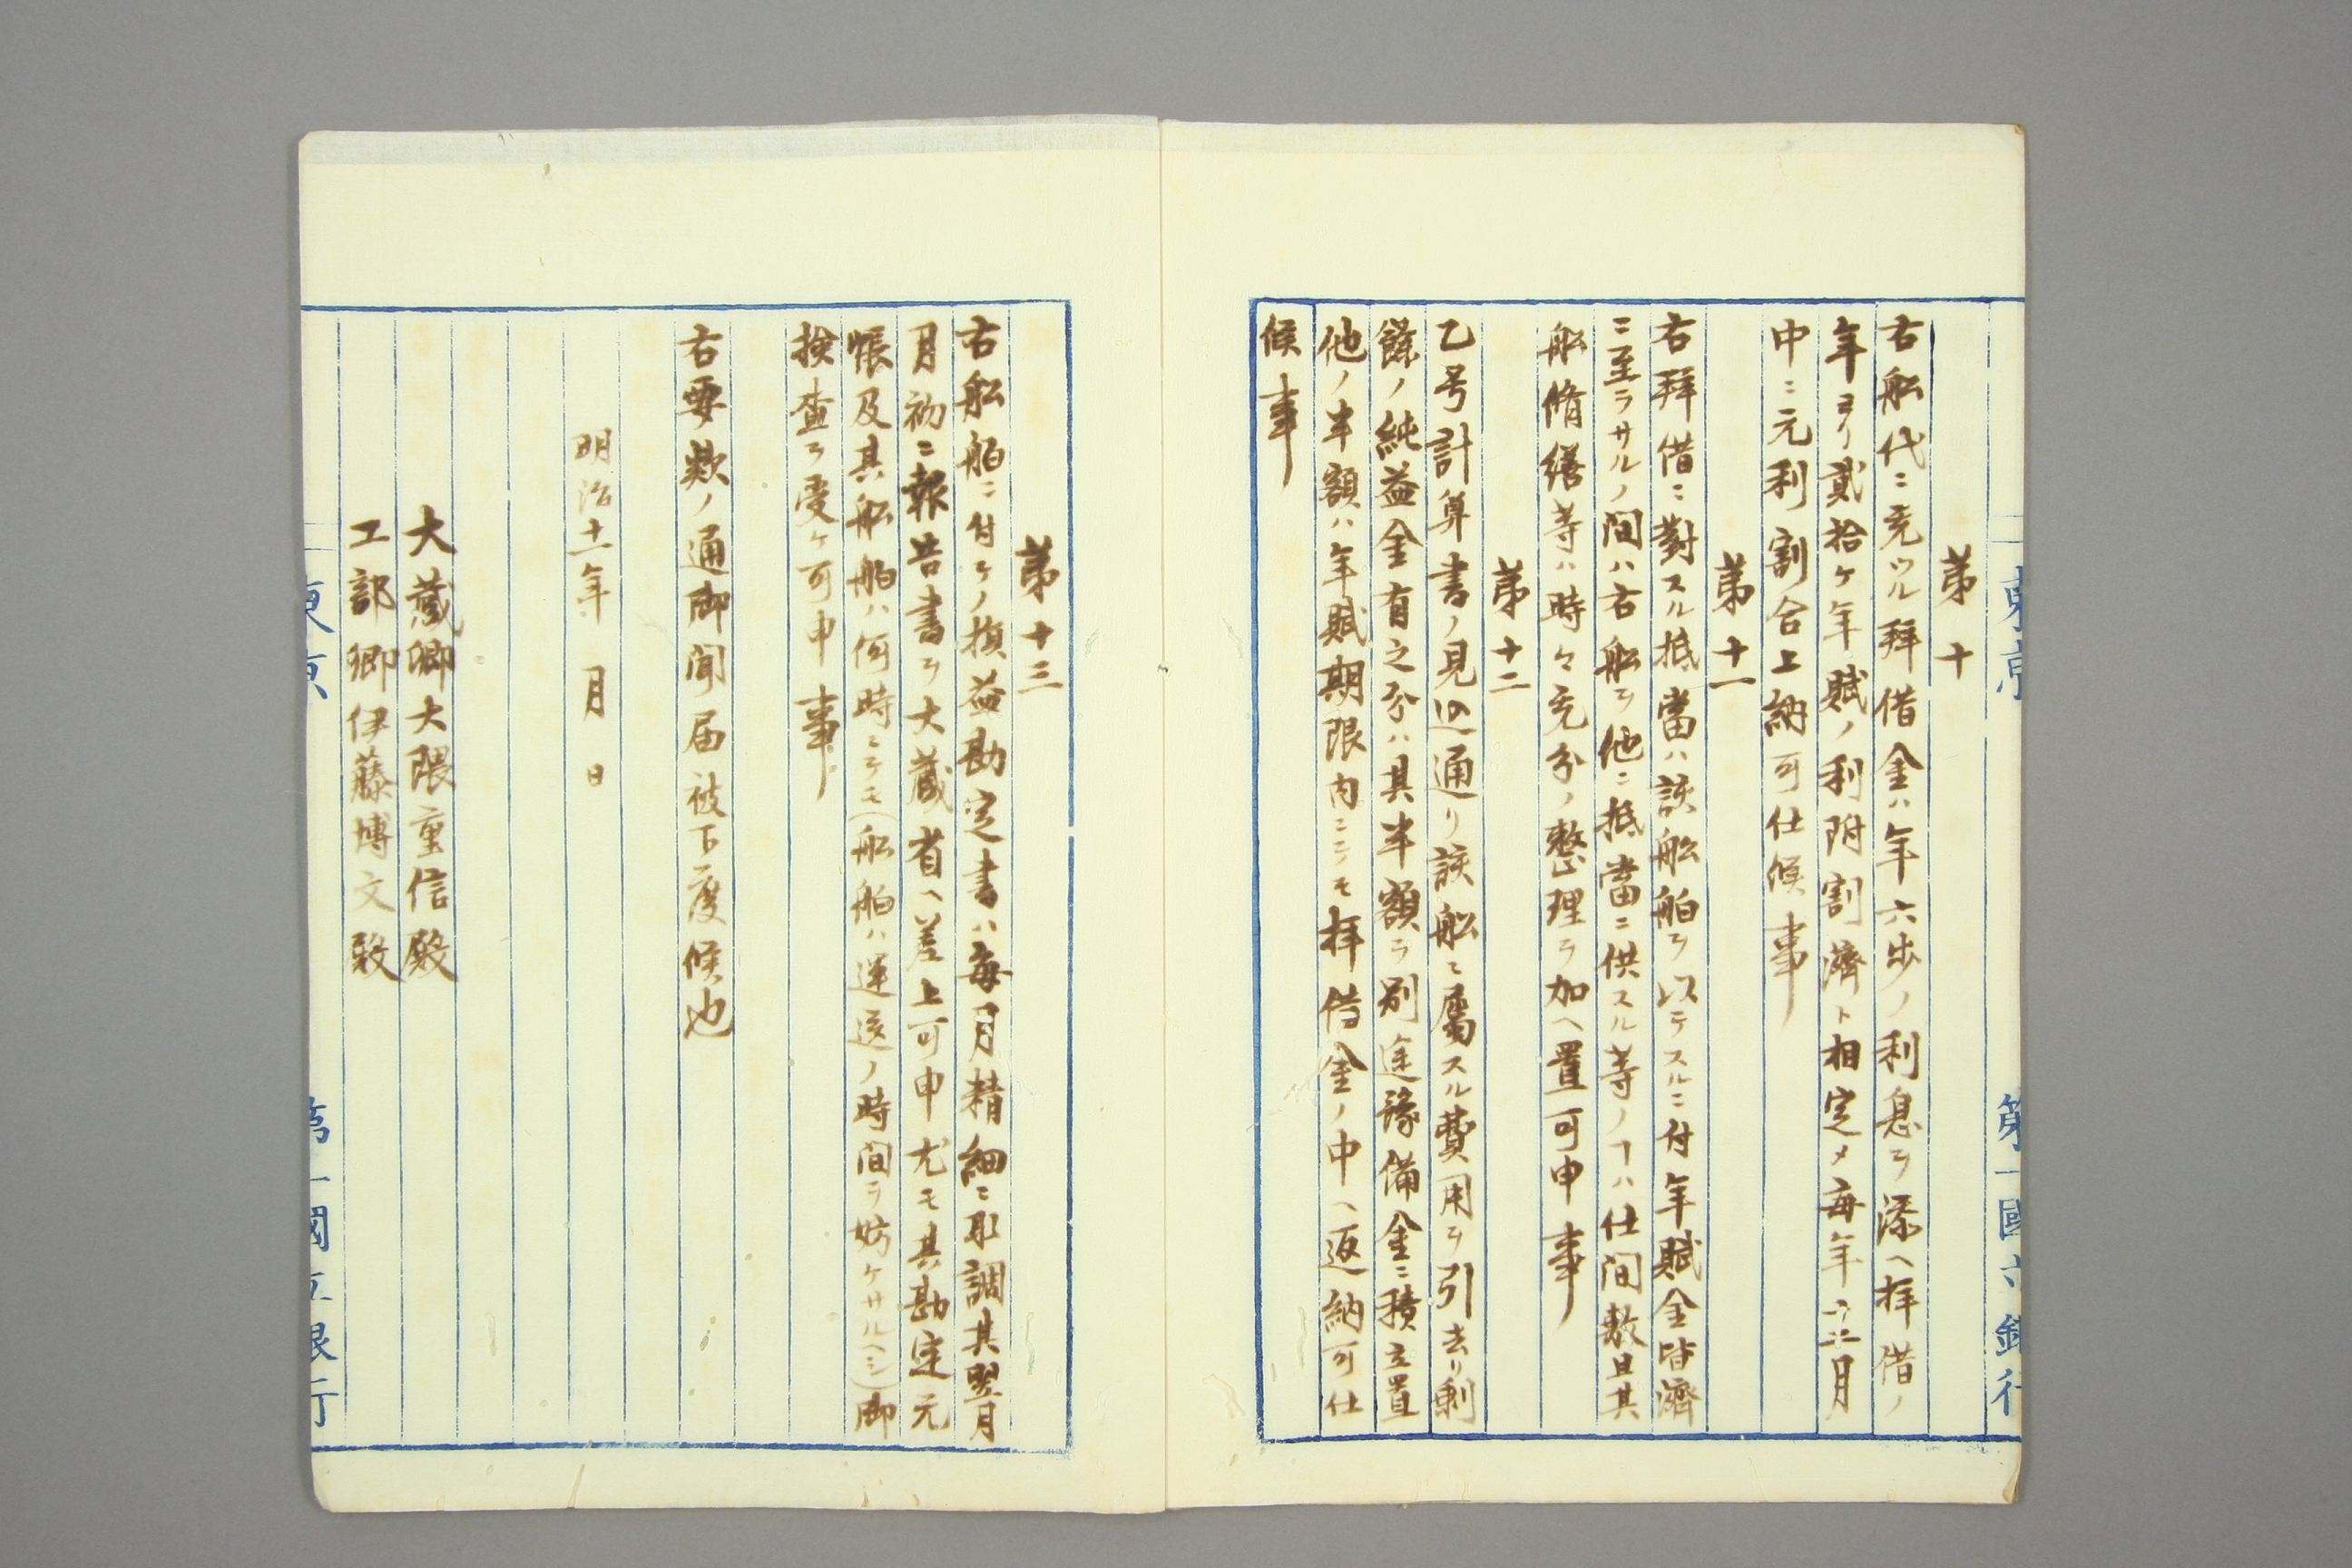 東京 第一國立銀行
第十
右船代ニ充ツル拜借金ハ年六歩ノ利息ヲ添ヘ拝借ノ
年ヨリ貳拾ケ年賦ノ利附割濟ト相定メ毎年 月
中ニ元利割合上納可仕候事
第十一
右拜借ニ對スル抵當ハ該船舶ヲ以テスルニ付年賦金皆濟
ニ至ラサルノ間ハ右船ヲ他ニ抵當ニ供スル等ノヿハ仕間敷且其
船脩繕等ハ時々充分ノ整理ヲ加ヘ置可申事
第十二
乙号計算書ノ見込通リ該船ニ屬スル費用ヲ引去リ剰
餘ノ純益金有之分ハ其半額ヲ別途豫備金ニ積立置
他ノ半額ハ年賦期限内ニテモ拝借金ノ中ヘ返納可仕
候事
第十三
右船舶ニ付テノ損益勘定書ハ毎月精細ニ取調其翌月
月初ニ報告書ヲ大蔵省ヘ差上可申尤モ其勘定元
帳及其船舶ハ何時ニテモ(船舶ハ運送ノ時間ヲ妨ケサルヘシ)御
檢査ヲ受ケ可申事
右要欵ノ通御聞届被下度候也
明治十一年 月 日
大蔵卿大隈重信殿
工部卿伊藤博文殿
東京 第一國立銀行